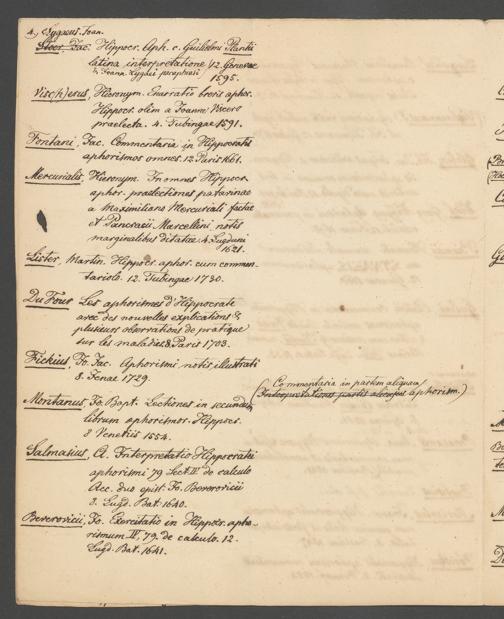 4. Lygaeus. Joan.
Steer, Jac. Hippocr. Aph. c. Guilelmi Plantii
latina interpretatione 12. Genevae
1595.
Visc(h)erus, Hieronym. Enarratio brevis aphor.
Hippocr. olim a Joanne Viscero
praelecta. 4. Tubingae 1591.
Fontani, Jac. Commentaria in Hippocratis
aphorismos omnes. 12. Paris 1661.
Mercurialis, Hieronym. In omnes Hippocr.
aphor. praelectiones patavinae
a Maximiliano Mercuriali factae
et Pancracii Marcellini, notis
marginalibus ditatae. 4. Lugduni
1621.
Lister, Martin. Hippocr. aphor. cum commen-
tariolo. 12. Tubingae 1730.
Du Four Les aphorismes d'Hippocrate
avec des nouvelles explications &
plusieurs observations de pratique
sur les maladies. 8. Paris 1703.
Fickius, Jo. Jac. Aphorismi notis illustrati
8. Jenae 1729.
Commentaria in partem aliquam
(Interpretationes partis alicujus aphorism.)
Montanus, Jo. Bapt. Lectiones in secundam
librum aphorismor. Hippocr.
8 Venetiis 1554.
Salmasius, Cl. Interpretatio Hippocratei
aphorismi 79 Sect. IV. de calculo
Acc. duo epist. Jo. Beverovicii
8. Lugd. Bat. 1640.
Beverovicii, Jo. Exercitatio in Hippocr. apho-
rismum IV, 79. de calculo. 12.
Lugd. Bat. 1641.